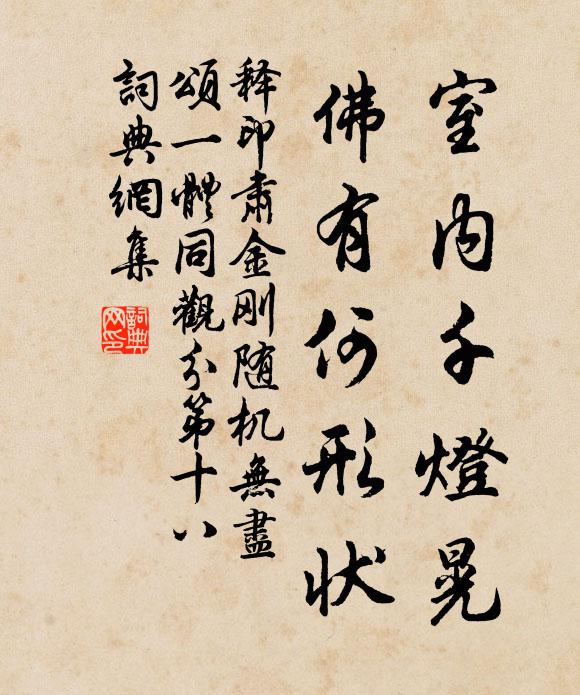 室内千燈晃
佛有何形状
释印肅金刚随机無盡
頌一體同觀分第十八
詞典網集
詞典网印